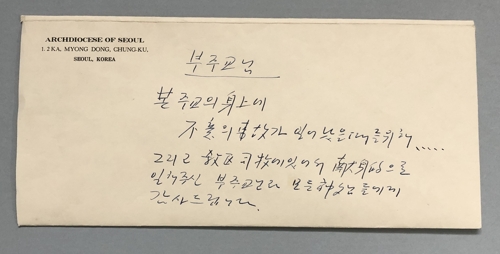 ARCHDIOCESE OF SEOUL
1. 2 KA, MYONG DONG, CHUNG-KU.
SEOUL, KOREA
부주교님
본 주교의 身上에
不意의 事故가 일어났을 때를 위해.....
그리고 敎區司牧에 있어서 献身的으로
일해주신 부주교님과 모든 神父님들에게
감사드립니다.